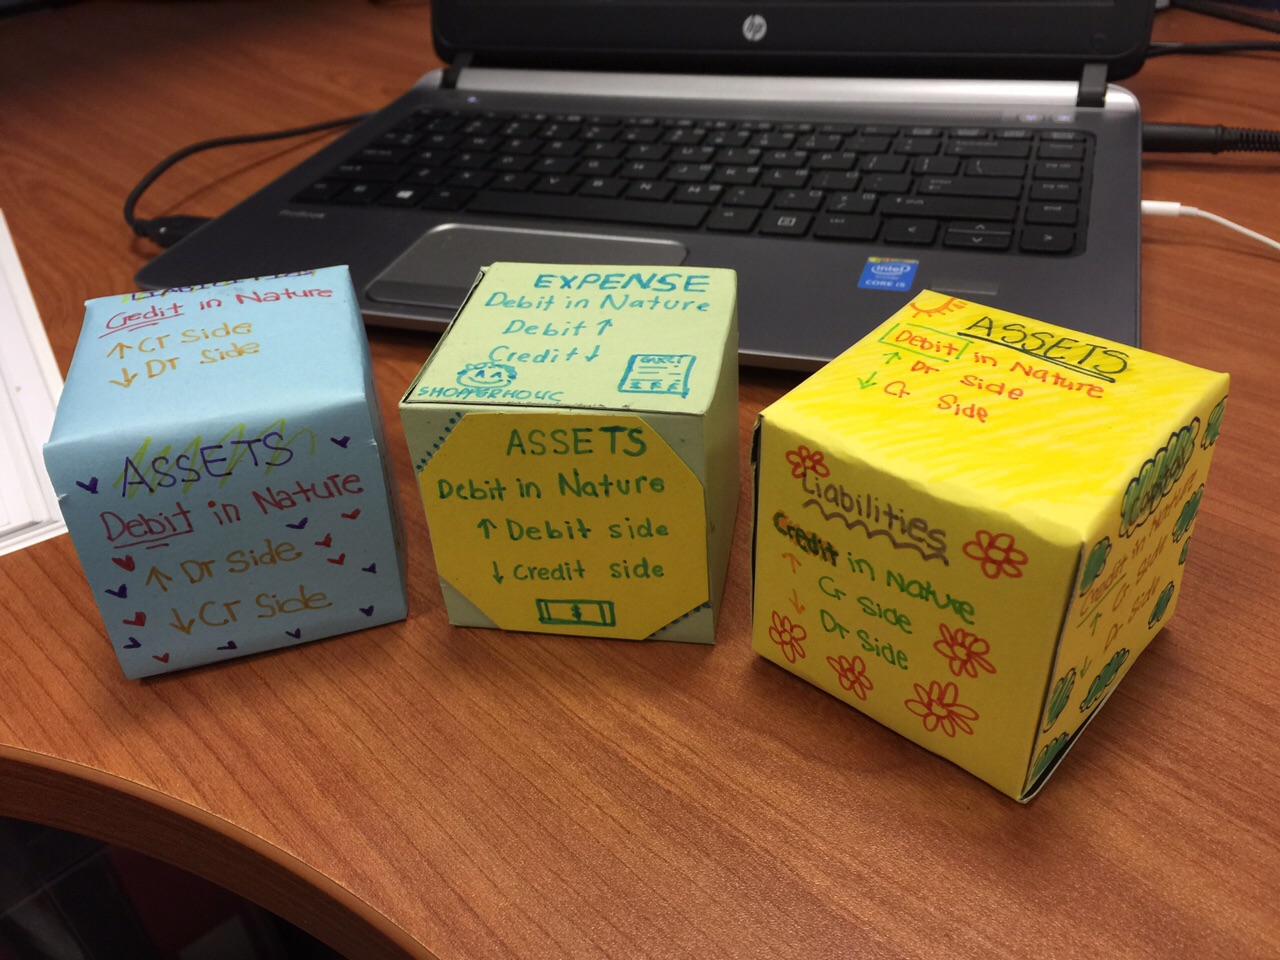 hp
intel
CORE i5
Credit in Nature
↑ Cr Side
↓ Dr Side
ASSETS
Debit in Nature
↑ Dr Side
↓ Cr Side
EXPENSE
Debit in Nature
Debit ↑
Credit ↓
SHOPPERHOLIC
ASSETS
Debit in Nature
↑ Debit side
↓ Credit side
$
ASSETS
Debit in Nature
↑ Dr Side
↓ Cr Side
Liabilities
Credit in Nature
↑ Cr Side
↓ Dr Side
Credit in Nature
↑ Cr Side
↓ Dr Side